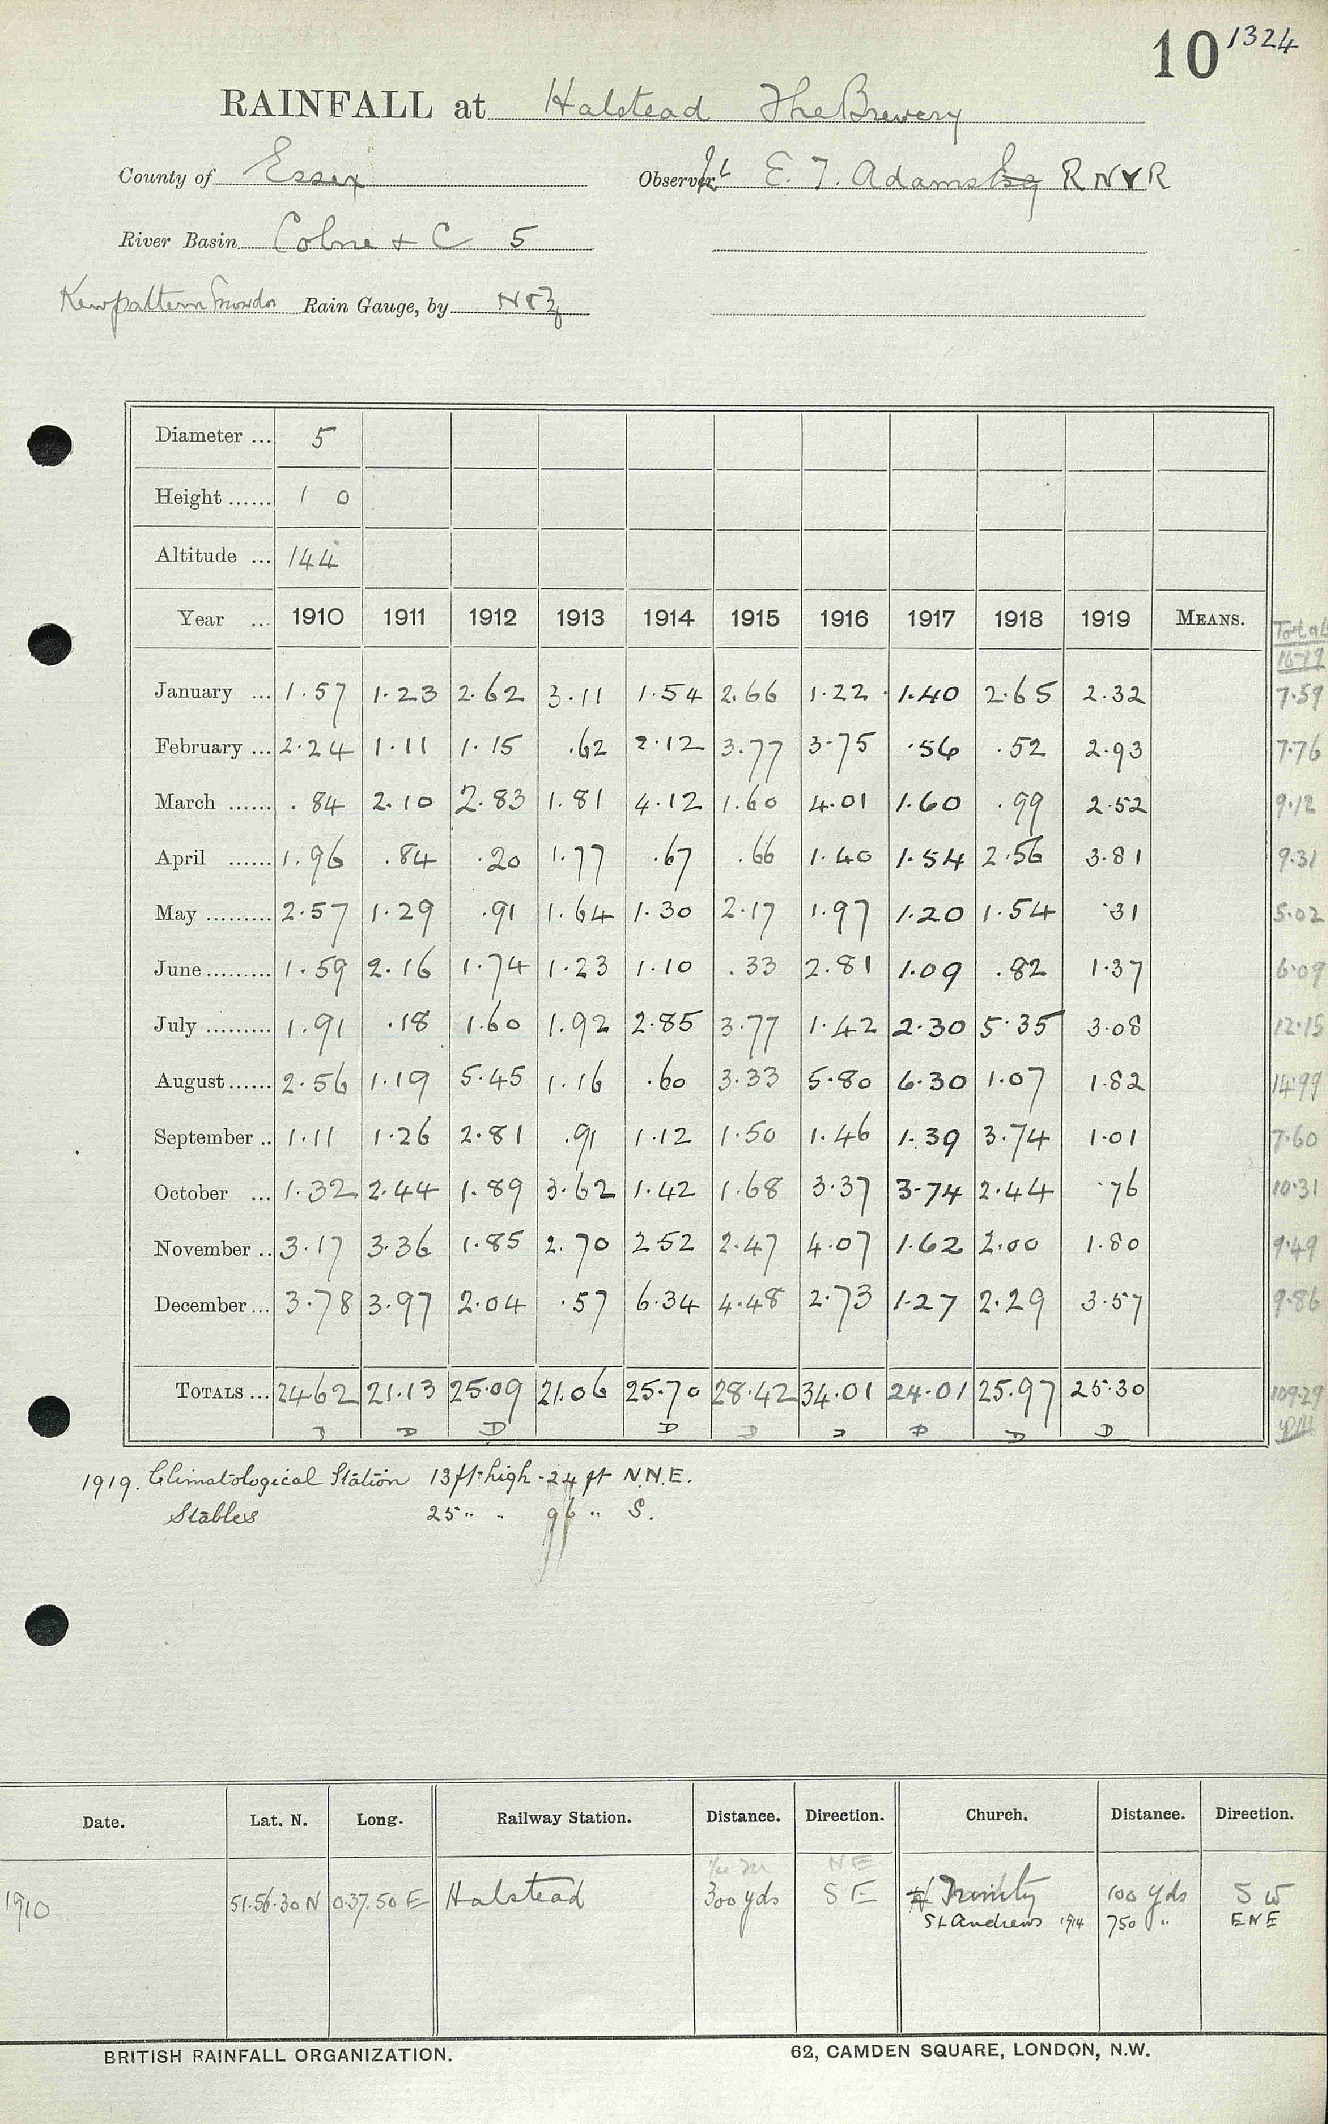 10 1324
RAINFALL at Halstead The Brewery
County of Essex Observer Lt E. T. Adams Esq R N V R
River Basin Colne & C 5
Kew pattern Snowdon Rain Gauge, by N & Z
Diameter ... 5
Height ...... 1 0
Altitude ... 144
Year ... 1910 1911 1912 1913 1914 1915 1916 1917 1918 1919 MEANS. Total 16-19
January ... 1.57 1.23 2.62 3.11 1.54 2.66 1.22 1.40 2.65 2.32 7.59
February ... 2.24 1.11 1.15 .62 2.12 3.77 3.75 .56 .52 2.93 7.76
March ...... .84 2.10 2.83 1.81 4.12 1.60 4.01 1.60 .99 2.52 9.12
April ...... 1.96 .84 .20 1.77 .67 .66 1.40 1.54 2.56 3.81 9.31
May ......... 2.57 1.29 .91 1.64 1.30 2.17 1.97 1.20 1.54 .31 5.02
June ......... 1.59 2.16 1.74 1.23 1.10 .33 2.81 1.09 .82 1.37 6.09
July ......... 1.91 .18 1.60 1.92 2.85 3.77 1.42 2.30 5.35 3.08 12.15
August ...... 2.56 1.19 5.45 1.16 .60 3.33 5.80 6.30 1.07 1.82 14.99
September .. 1.11 1.26 2.81 .91 1.12 1.50 1.46 1.39 3.74 1.01 7.60
October ... 1.32 2.44 1.89 3.62 1.42 1.68 3.37 3.74 2.44 .76 10.31
November .. 3.17 3.36 1.85 2.70 2.52 2.47 4.07 1.62 2.00 1.80 9.49
December ... 3.78 3.97 2.04 .57 6.34 4.48 2.73 1.27 2.29 3.57 9.86
TOTALS ... 24.62 21.13 25.09 21.06 25.70 28.42 34.01 24.01 25.97 25.30 109.29
D D D D D D D D D
1919. Climatological Station 13 ft high - 24 ft N.N.E.
Stables 25 " " 96 " S.
Date. Lat. N. Long. Railway Station. Distance. Direction. Church. Distance. Direction.
NE
1910 51.56.30 N 0.37.50 E Halstead 300 yds S E H Trinity 100 yds S W
St Andrews 1914 750 " E N E
BRITISH RAINFALL ORGANIZATION. 62, CAMDEN SQUARE, LONDON, N.W.